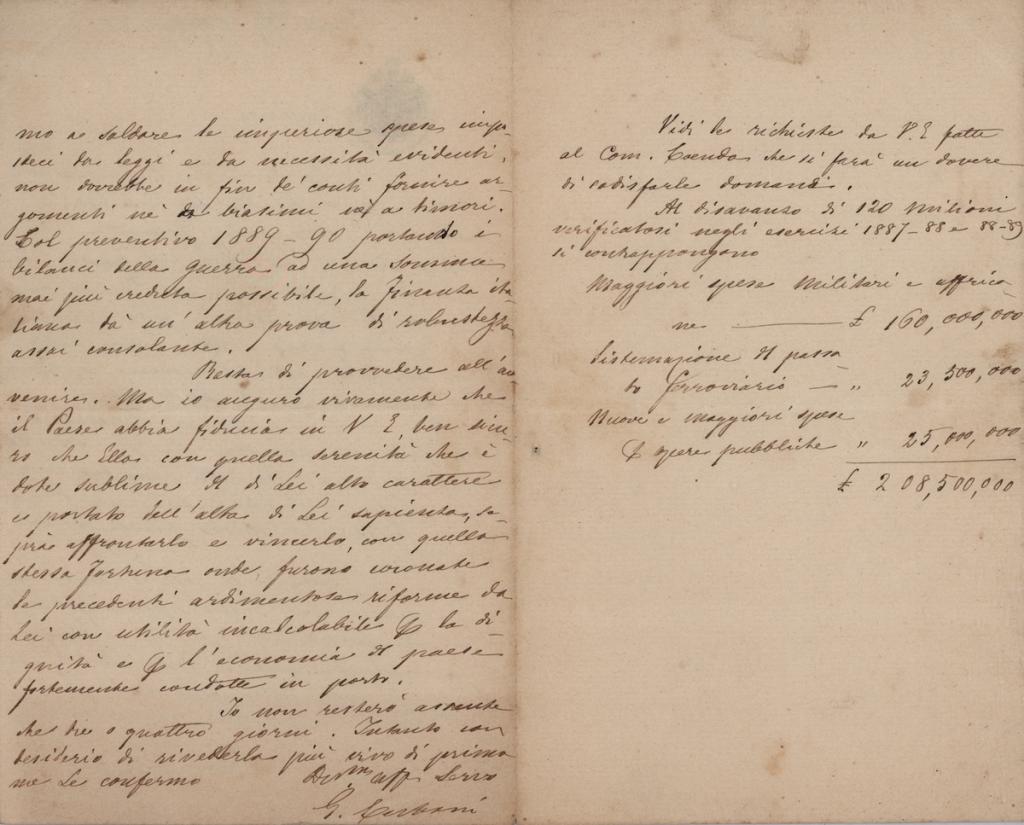 mo a saldare le imperiose spese impo-
steci da leggi e da necessità evidenti,
non dovrebbe in fin de' conti fornire ar-
gomenti nè di biasimi nè a timori.
Col preventivo 1889-90 portando i
bilanci della guerra ad una somma
mai più creduta possibile, la finanza ita-
liana dà un'altra prova di robustezza
assai consolante.
Resta di provvedere all'av-
venire. Ma io auguro vivamente che
il Paese abbia fiducia in V E, ben sicu-
ro che Ella con quella serenità che è
dote sublime del di Lei alto carattere
e portato dell'alta di Lei sapienza, sa-
prà affrontarlo e vincerlo, con quella
stessa fortuna onde furono coronate
le precedenti ardimentose riforme da
Lei con utilità incalcolabile p la di-
gnità e p l'economia del paese
fortemente condotte in porto.
Io non resterò assente
che tre o quattro giorni. Intanto con
desiderio di rivederla più vivo di prima
me Le confermo Dev.mo aff. Servo
G.
Vidi le richieste da V. E fatte
al Com. che si farà un dovere
di sodisfarle domani.
Al disavanzo di 120 milioni
verificatosi negli esercizi 1887-88 e 88-89
si contrappongono
Maggiori spese militari e affrica-
ne — £ 160,000,000
Sistemazione del passa
to ferroviario — „ 23,500,000
Nuove e maggiori spese
p opere pubbliche „ 25,000,000
£ 208,500,000